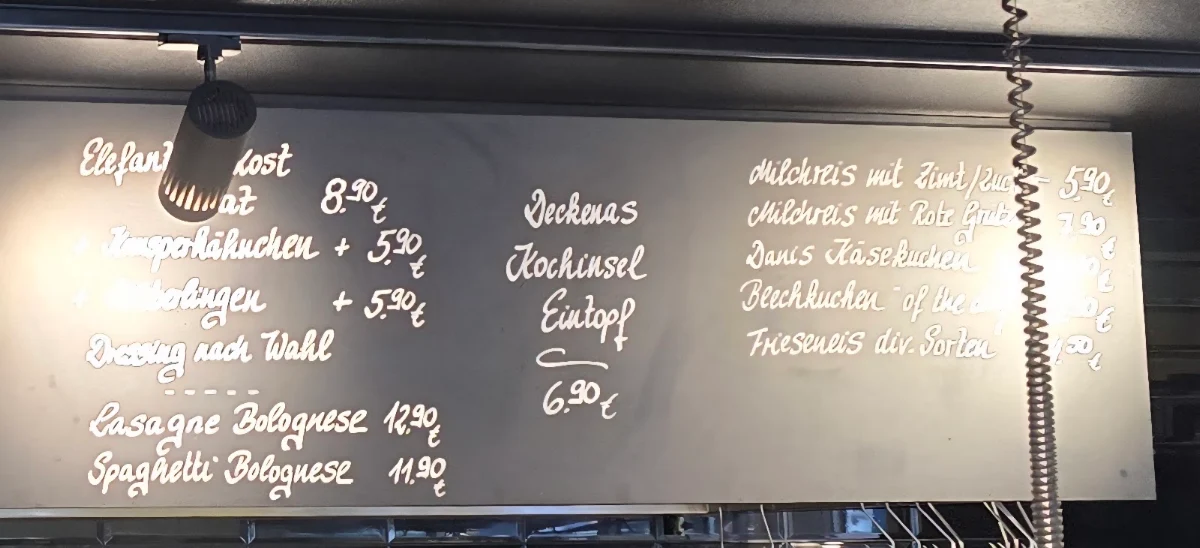 Elefant Kost
8.90 €
+ Knusperhähnchen + 5.90 €
+ + 5.90 €
Dressing nach Wahl
-----
Lasagne Bolognese 12.90 €
Spaghetti Bolognese 11.90 €
Deckenas
Kochinsel
Eintopf
6.90 €
Milchreis mit Zimt/Zuc 5.90 €
Milchreis mit Rote Grütz 7.90 €
Danis Käsekuchen €
Blechkuchen "of the €
Frieseneis div. Sorten €